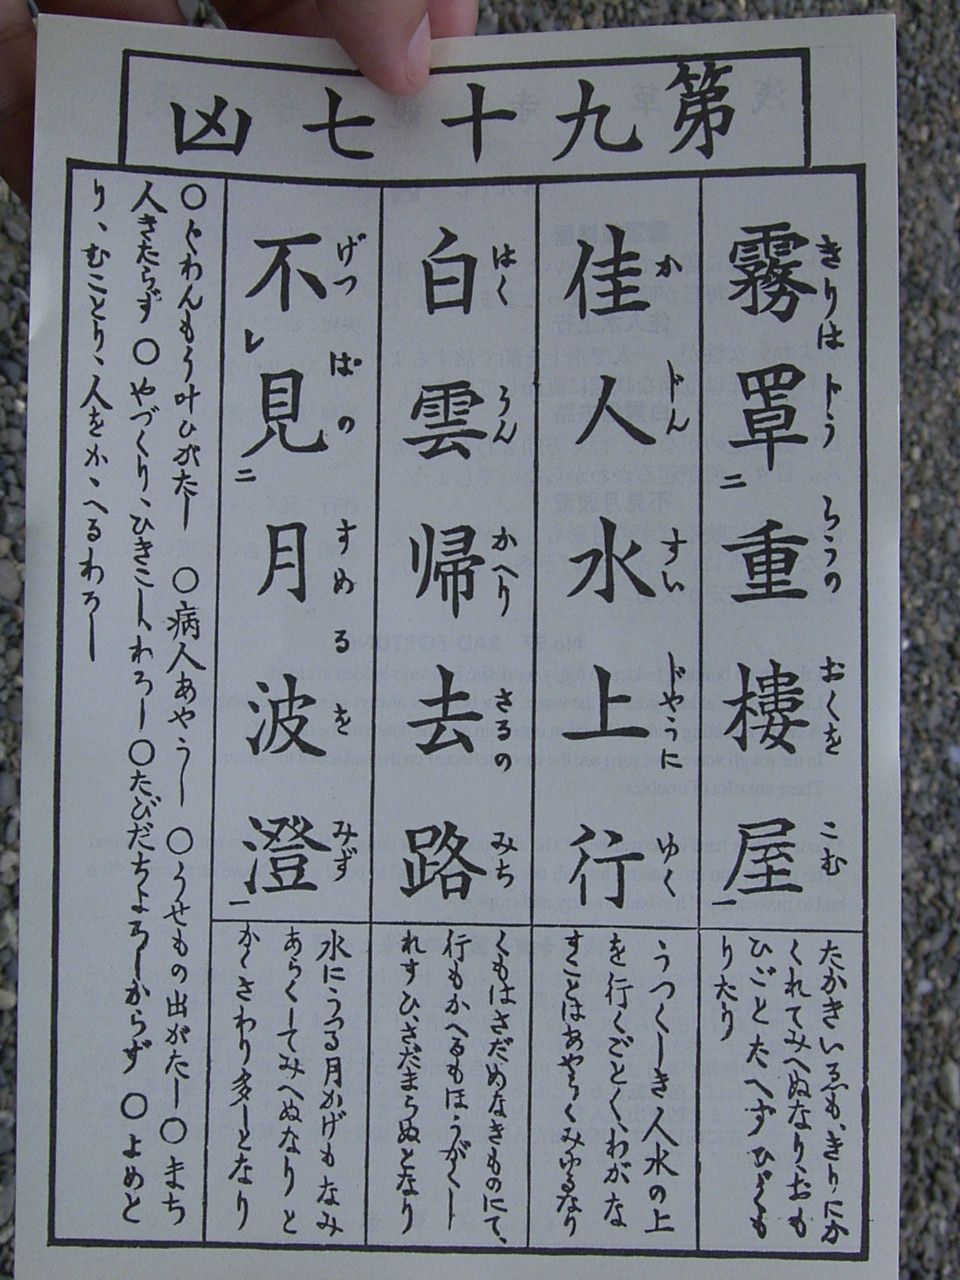 第九十七凶
霧罩二重樓屋一
きりは どう ちうの おくを こむ
佳人水上行
か じん すい じやうに ゆく
白雲帰去路
はく うん かへり さるの みち
不レ見二月波澄一
げつ ぱの すめ るを みず
たかきいゑも、きりにか
くれてみへぬなり、おも
ひごとたへずひさしきも
りたり
うつくしき人水の上
を行くごとくわがな
すことはあやうくみゆるなり
くもはさだめなきものにて、
行もかへるもほうがくし
れすひ、さだまらぬとなり
水にうつる月かげもなみ
あらくしてみへぬなりと
かくさわり多しとなり
○ぐわんもう叶ひがたし ○病人あやうし ○うせもの出がたし○まち
人きたらず ○やづくり、ひきこしわろし○たびだちよろしからず ○よめと
り、むことり、人をかゝへるわろし